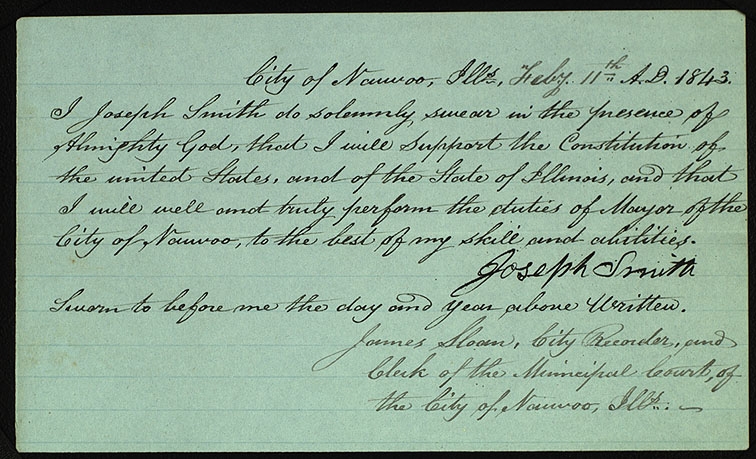 City of Nauvoo, Ills, Feby. 11th A.D. 1843.
I Joseph Smith do solemnly swear in the presence of
Almighty God, that I will support the Constitution of
the united States, and of the State of Illinois, and that
I will well and truly perform the duties of Mayor of the
City of Nauvoo, to the best of my skill and abilities.
Joseph Smith
Sworn to before me the day and year above Written.
James Sloan, City Recorder, and
Clerk of the Municipal Court, of
the City of Nauvoo, Ills.